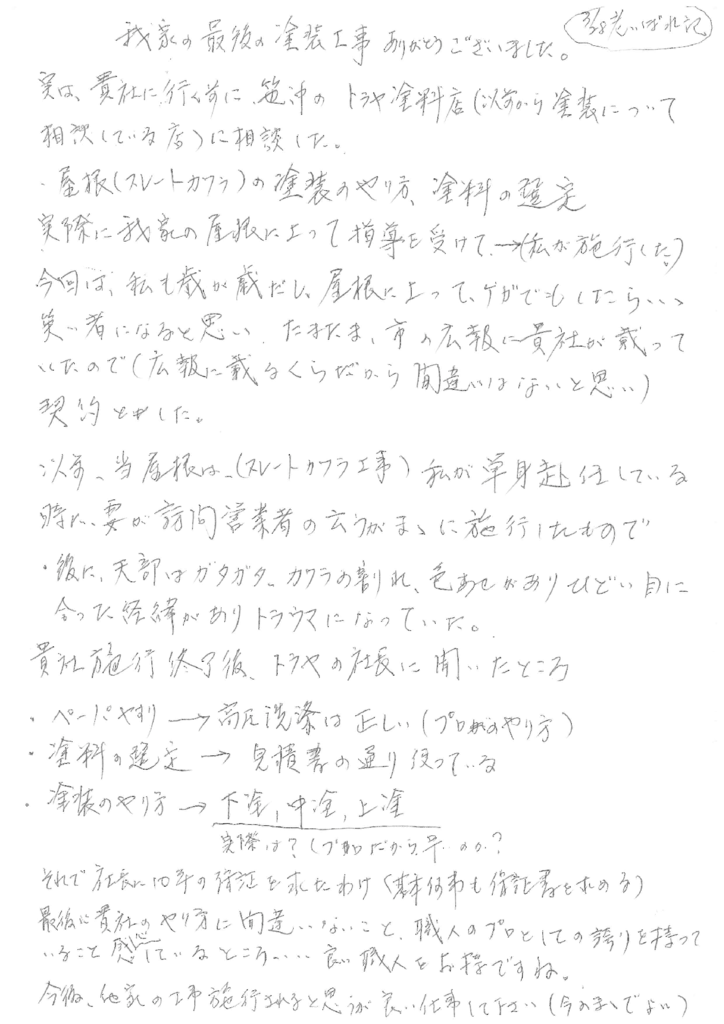 3/28 老いぼれ記
我家の最後の塗装工事 ありがとうございました。
実は、貴社に行く前に、笹沖の トラヤ塗料店(以前から塗装について
相談している店)に相談した。
・屋根(スレートカワラ)の塗装のやり方、塗料の選定
実際に我家の屋根に上って指導を受けて→(私が施行した。)
今回は、私も歳が歳だし、屋根に上って、ケガでもしたらいい
笑い者になると思い、たまたま、市の広報に貴社が載って
いたので(広報に載るくらだから間違いはないと思い)
契約とした。
以前、当屋根は、(スレートカワラ工事)私が単身赴任している
時に、妻が訪問営業者の云うがまゝに施行したもので
・後に、天部はガタガタ、カワラの割れ、色あせがありひどい目に
合った経緯がありトラウマになっていた。
貴社施行終了後、トラヤの社長に聞いたところ
・ペーパやすり→高圧洗滌は正しい(プロのやり方)
・塗料の選定→見積書の通り使っている
・塗装のやり方→下塗,中塗,上塗
実際は?(プロだから早いのか?
それで社長に10年の保証を求たわけ(基本何事も保証書を求める)
最後に貴社のやり方に間違いないこと、職人のプロとしての誇りを持って
いること 感心しているところ‥‥良い職人をお持ですね。
今後、他家の工事施行されると思うが良い仕事して下さい(今のまゝでよい)